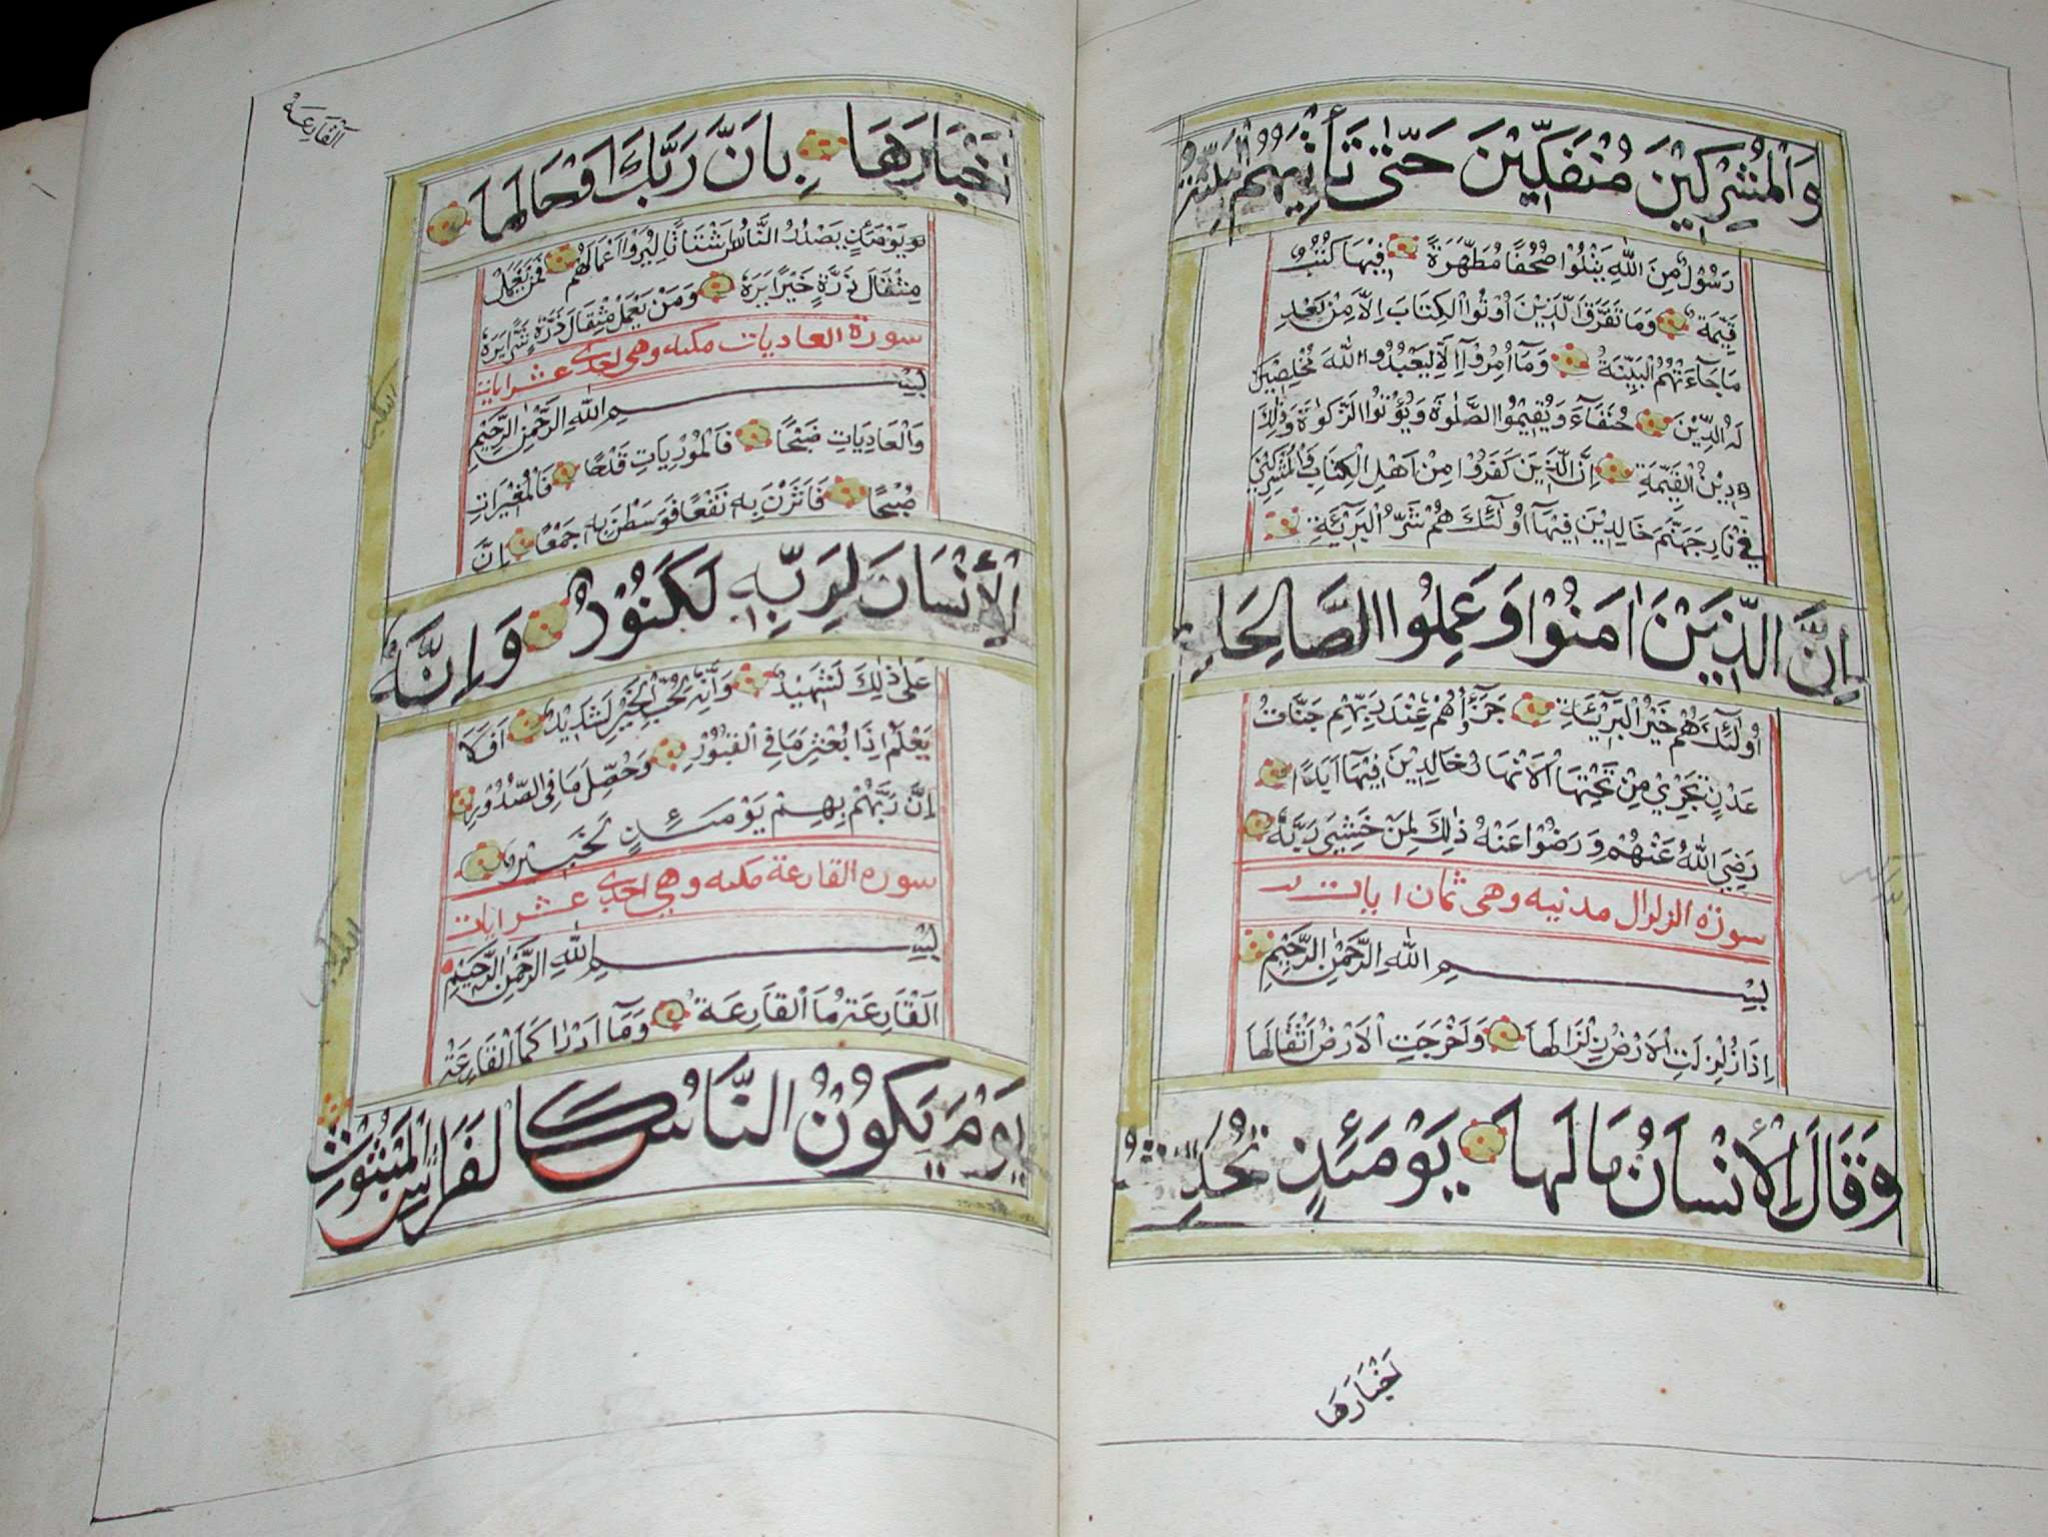 وَالْمُشْرِكِيْنَ مُنْفَكِّيْنَ حَتّٰى تَأْتِيَهُمُ الْبَيِّنَةُ
رَسُوْلٌ مِنَ اللّٰهِ يَتْلُوْا صُحُفًا مُطَهَّرَةً فِيْهَا كُتُبٌ
قَيِّمَةٌ وَمَا تَفَرَّقَ الَّذِيْنَ اُوْتُوا الْكِتَابَ اِلَّا مِنْ بَعْدِ
مَا جَآءَتْهُمُ الْبَيِّنَةُ وَمَآ اُمِرُوْآ اِلَّا لِيَعْبُدُوا اللّٰهَ مُخْلِصِيْنَ
لَهُ الدِّيْنَ حُنَفَآءَ وَيُقِيْمُوا الصَّلٰوةَ وَيُؤْتُوا الزَّكٰوةَ وَذٰلِكَ
دِيْنُ الْقَيِّمَةِ اِنَّ الَّذِيْنَ كَفَرُوْا مِنْ اَهْلِ الْكِتَابِ وَالْمُشْرِكِيْنَ
فِيْ نَارِ جَهَنَّمَ خَالِدِيْنَ فِيْهَآ اُولٰٓئِكَ هُمْ شَرُّ الْبَرِيْٓئَةِ
اِنَّ الَّذِيْنَ اٰمَنُوْا وَعَمِلُوا الصَّالِحَاتِ
اُولٰٓئِكَ هُمْ خَيْرُ الْبَرِيْٓئَةِ جَزَآؤُهُمْ عِنْدَ رَبِّهِمْ جَنَّاتُ
عَدْنٍ تَجْرِيْ مِنْ تَحْتِهَا الْاَنْهَارُ خَالِدِيْنَ فِيْهَآ اَبَدًا
رَضِيَ اللّٰهُ عَنْهُمْ وَرَضُوْا عَنْهُ ذٰلِكَ لِمَنْ خَشِيَ رَبَّهُ
سورة الزلزال مدنيه وهى ثمان ايات
بِسْمِ اللّٰهِ الرَّحْمٰنِ الرَّحِيْمِ
اِذَا زُلْزِلَتِ الْاَرْضُ زِلْزَالَهَا وَاَخْرَجَتِ الْاَرْضُ اَثْقَالَهَا
وَقَالَ الْاِنْسَانُ مَا لَهَا يَوْمَئِذٍ تُحَدِّثُ
اَخْبَارَهَا
اَلْقَارِعَةُ
اَخْبَارَهَا بِاَنَّ رَبَّكَ اَوْحَا لَهَا
يَوْمَئِذٍ يَصْدُرُ النَّاسُ اَشْتَاتًا لِيُرَوْا اَعْمَالَهُمْ فَمَنْ يَعْمَلْ
مِثْقَالَ ذَرَّةٍ خَيْرًا يَرَهُ وَمَنْ يَعْمَلْ مِثْقَالَ ذَرَّةٍ شَرًّا يَرَهُ
سورة العاديات مكيه وهى احدى عشر اياية
بِسْمِ اللّٰهِ الرَّحْمٰنِ الرَّحِيْمِ
وَالْعَادِيَاتِ ضَبْحًا فَالْمُوْرِيَاتِ قَدْحًا فَالْمُغِيْرَاتِ
صُبْحًا فَاَثَرْنَ بِهِ نَقْعًا فَوَسَطْنَ بِهِ جَمْعًا اِنَّ
الْاِنْسَانَ لِرَبِّهِ لَكَنُوْدٌ وَاِنَّهُ
عَلٰى ذٰلِكَ لَشَهِيْدٌ وَاَنَّهُ لِحُبِّ الْخَيْرِ لَشَدِيْدٌ اَفَلَا
يَعْلَمُ اِذَا بُعْثِرَ مَا فِى الْقُبُوْرِ وَحُصِّلَ مَا فِى الصُّدُوْرِ
اِنَّ رَبَّهُمْ بِهِمْ يَوْمَئِذٍ لَخَبِيْرٌ
سورة القارعة مكيه وهي احدى عشر ايات
بِسْمِ اللّٰهِ الرَّحْمٰنِ الرَّحِيْمِ
اَلْقَارِعَةُ مَا الْقَارِعَةُ وَمَآ اَدْرٰاكَ مَا الْقَارِعَةُ
يَوْمَ يَكُوْنُ النَّاسُ كَالْفَرَاشِ الْمَبْثُوْثِ